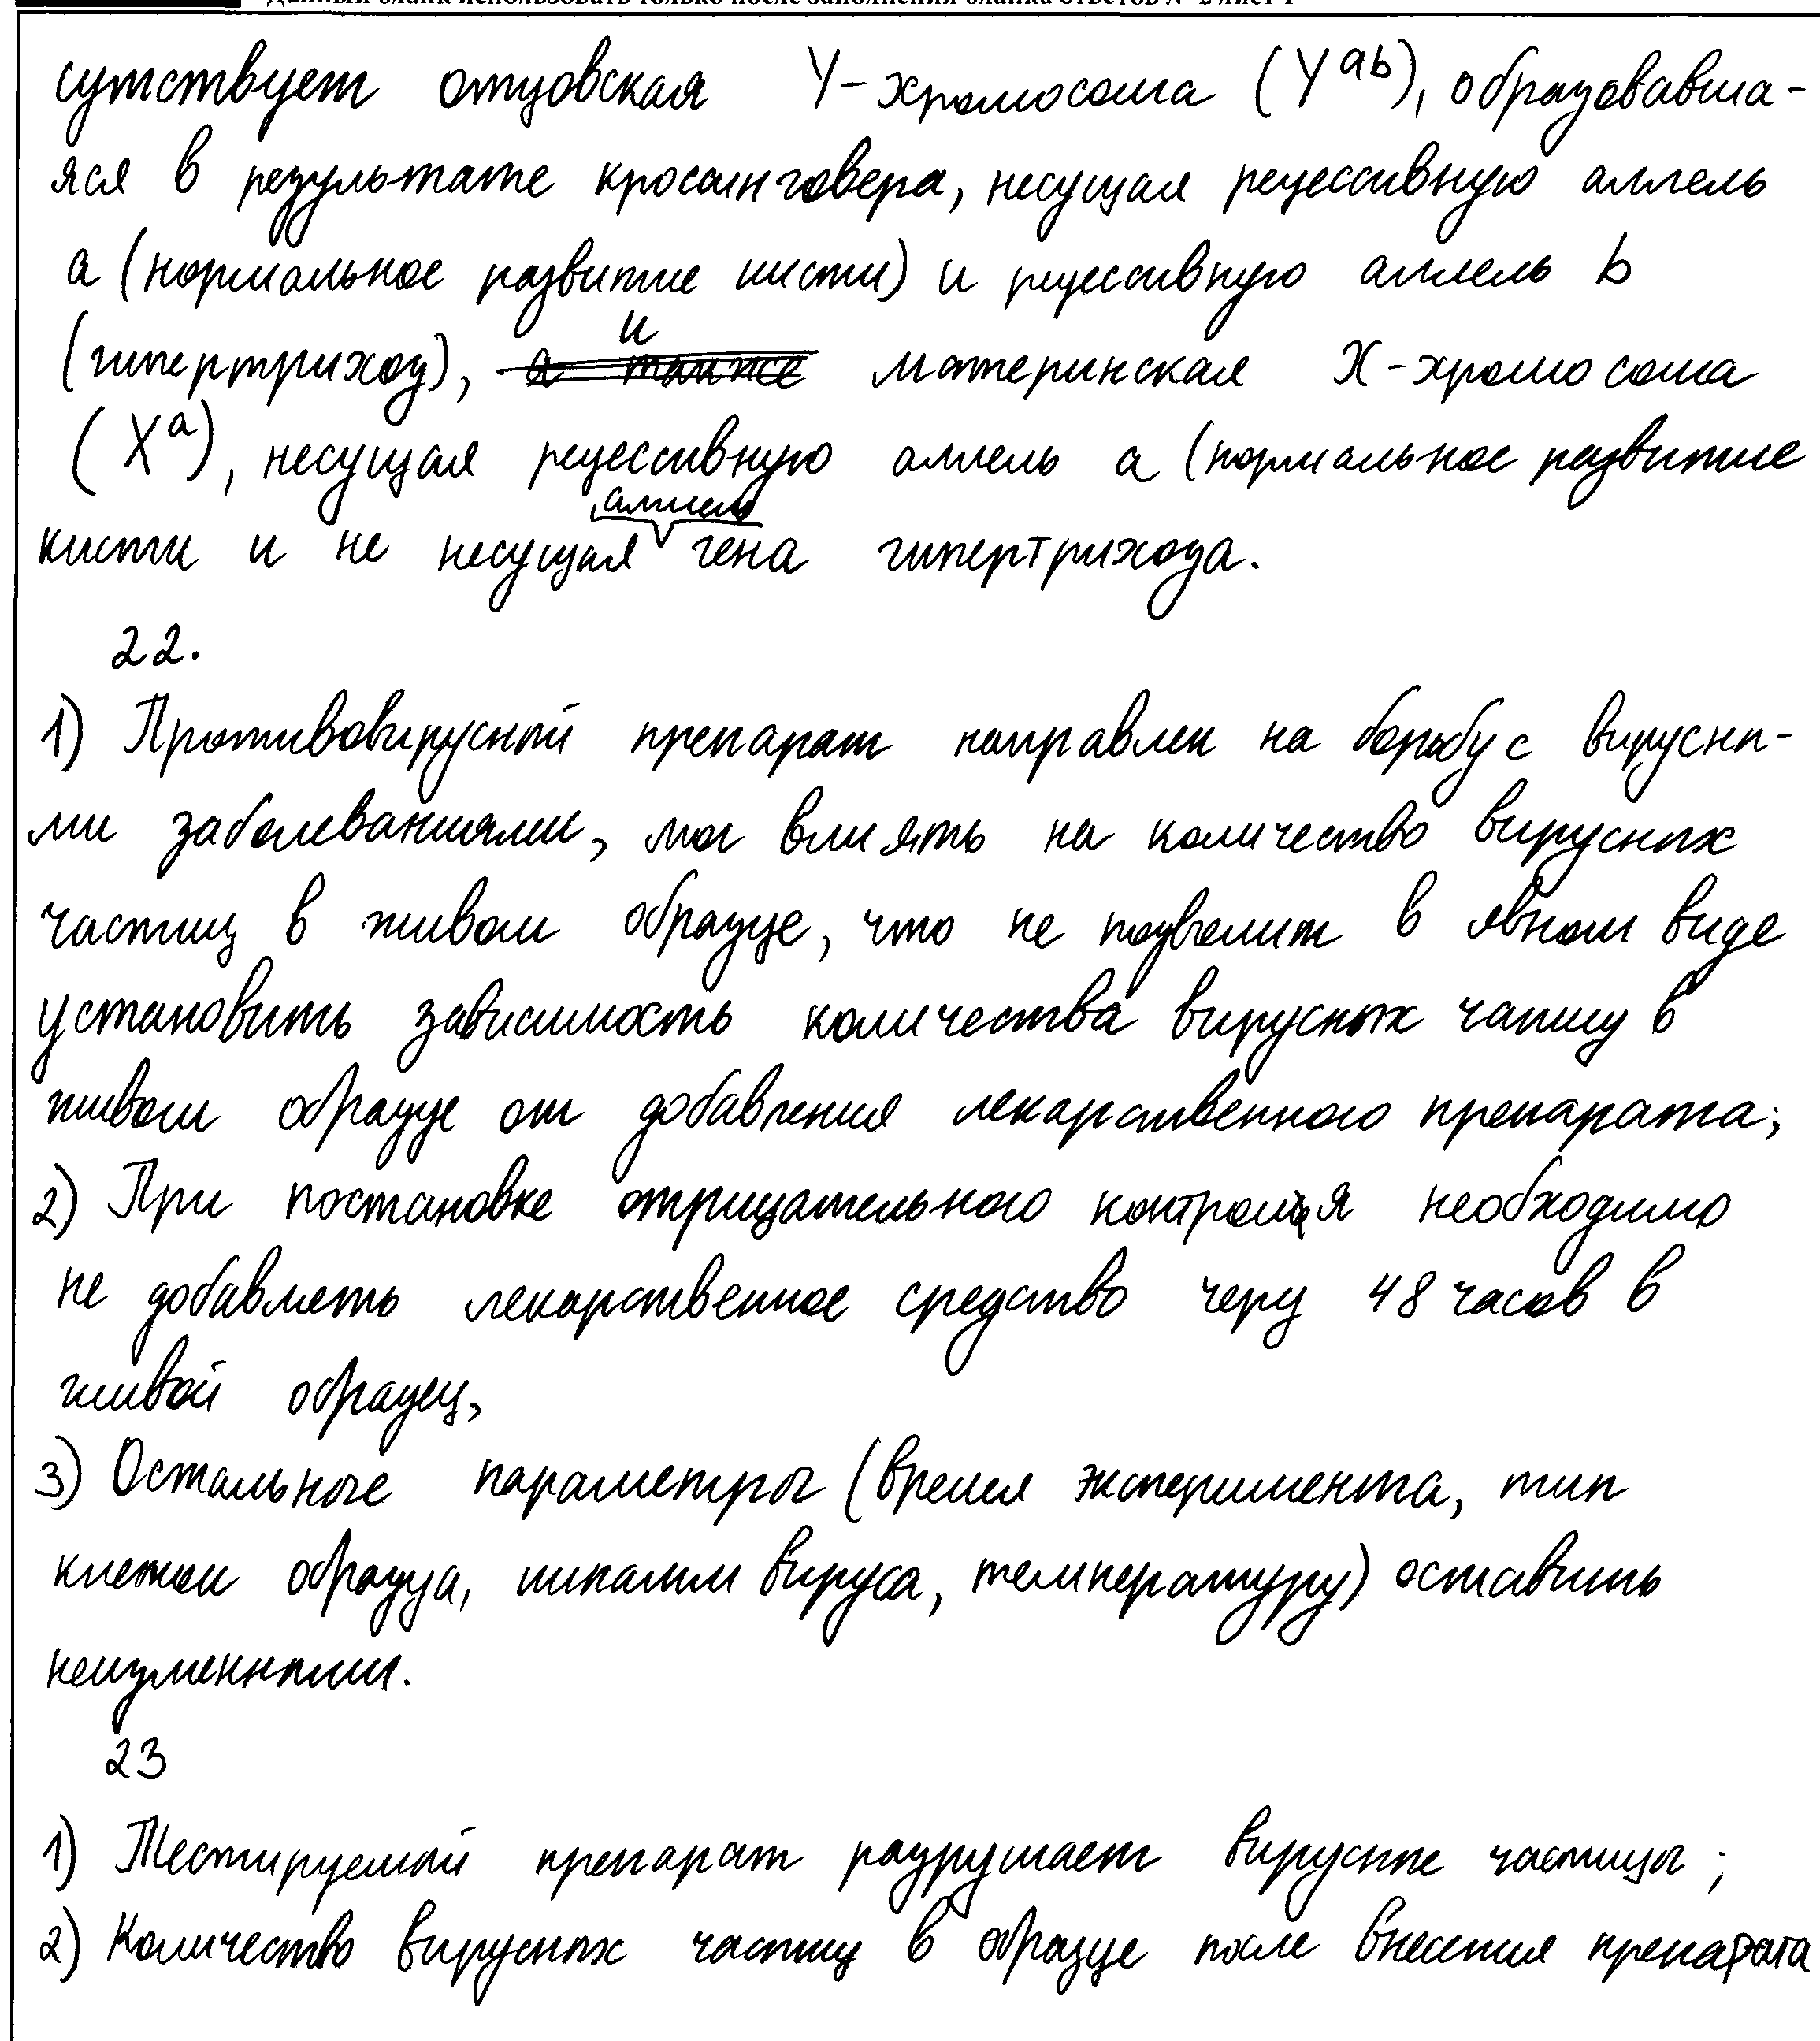 Данный бланк использовать только после заполнения бланка ответов № 2 лист 1
сутствует отцовская Y-хромосома (Y^ab), образовавша-
яся в результате кроссинговера, несущая рецессивную аллель
a (нормальное развитие кисти) и рецессивную аллель b
(гипертриход), и материнская X-хромосома
(X^a), несущая рецессивную аллель a (нормальное развитие
кисти и не несущая аллель гена гипертрихода.
22.
1) Противовирусный препарат направлен на борьбу с вирусны-
ми заболеваниями, мог влиять на количество вирусных
частиц в живом образце, что не позволит в явном виде
установить зависимость количества вирусных частиц в
живом образце от добавления лекарственного препарата;
2) При постановке отрицательного контроля необходимо
не добавлять лекарственное средство через 48 часов в
живой образец,
3) Остальные параметры (время эксперимента, тип
клетки образца, штамм вируса, температуру) оставить
неизменными.
23
1) Тестируемый препарат разрушает вирусные частицы;
2) Количество вирусных частиц в образце после внесения препарата